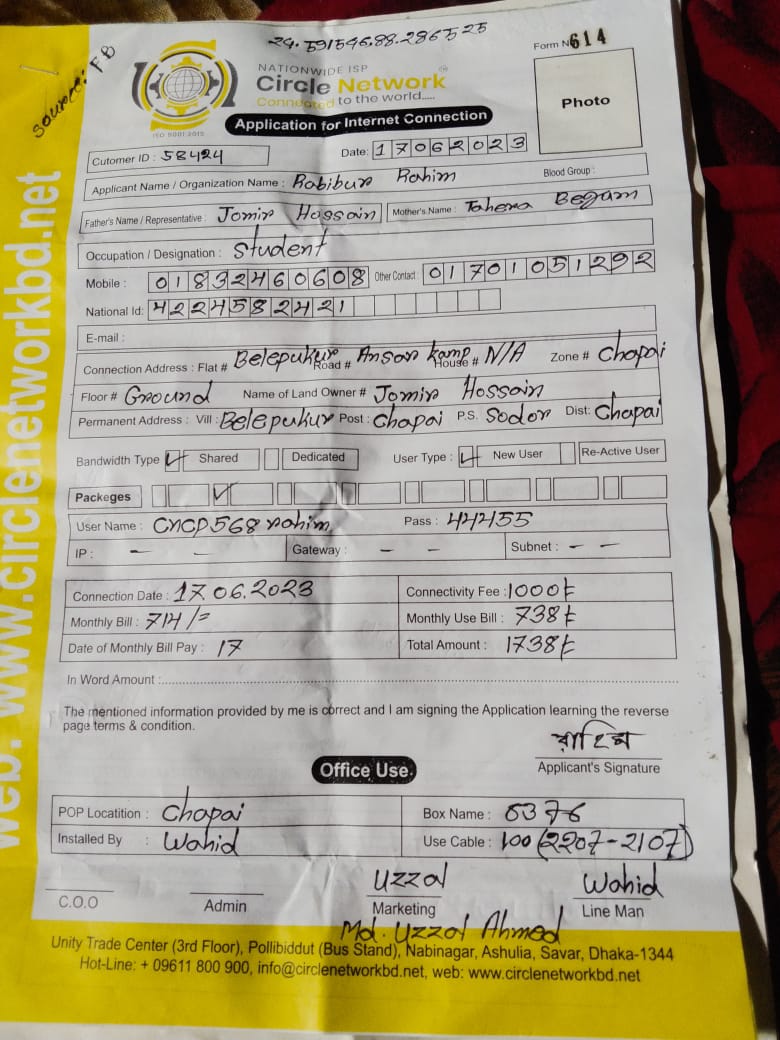 24.591546.88.286525
Form No 614
source: FB
NATIONWIDE ISP
Circle Network
Connected to the world.....
ISO 9001:2015
Photo
Application for Internet Connection
Cutomer ID : 58424 Date: 17062023
Applicant Name / Organization Name : Robibur Rahim Blood Group :
Father's Name / Representative : Jomir Hossain Mother's Name : Tahera Begum
Occupation / Designation : Student
Mobile : 01832460608 Other Contact : 01701051292
National Id: 4224582421
E-mail :
Connection Address : Flat # Belepukur Road # Ansar kamp House # N/A Zone # Chapai
Floor # Ground Name of Land Owner # Jomir Hossain
Permanent Address : Vill : Belepukur Post : Chapai P.S. Sodor Dist: Chapai
Bandwidth Type Shared Dedicated User Type : New User Re-Active User
Packeges
User Name : CNCP568rahim Pass : 44455
IP : - - Gateway : - - Subnet : - -
Connection Date : 17.06.2023 Connectivity Fee : 1000৳
Monthly Bill : 714/= Monthly Use Bill : 738৳
Date of Monthly Bill Pay : 17 Total Amount : 1738৳
In Word Amount :
The mentioned information provided by me is correct and I am signing the Application learning the reverse
page terms & condition.
রাহিম
Applicant's Signature
Office Use
POP Locatition : Chapai Box Name : 5376
Installed By : Wahid Use Cable : 100 (2207-2107)
Uzzal Wahid
C.O.O Admin Marketing Line Man
Md. Uzzal Ahmed
Unity Trade Center (3rd Floor), Pollibiddut (Bus Stand), Nabinagar, Ashulia, Savar, Dhaka-1344
Hot-Line: + 09611 800 900, info@circlenetworkbd.net, web: www.circlenetworkbd.net
web: www.circlenetworkbd.net